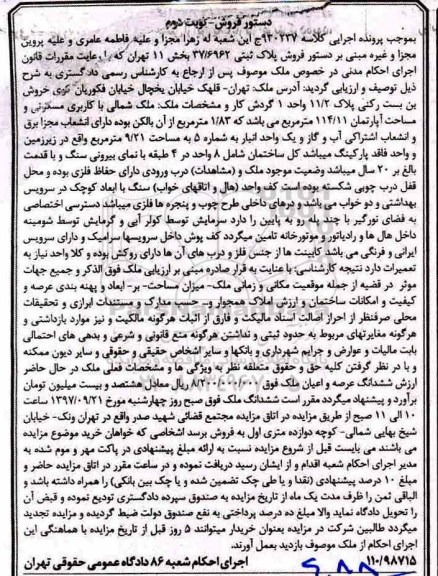 دستور فروش-نوبت دوم
بموجب پرونده اجرایی کلاسه ۹۲۰۲۳۷ج این شعبه له زهرا مجزا و علیه فاطمه عامری و علیه پروین
مجزا و غیره مبنی بر دستور فروش پلاک ثبتی ۳۷/۶۹۶۲ بخش ۱۱ تهران که با رعایت مقررات قانون
اجرای احکام مدنی در خصوص ملک موصوف پس از ارجاع به کارشناس رسمی دادگستری به شرح
ذیل توصیف و ارزیابی گردید: آدرس ملک: تهران- قلهک خیابان یخچال خیابان فکوریان کوی خروش
بن بست رکنی پلاک ۱۱/۲ واحد ۱ گردش کار و مشخصات ملک: ملک شمالی با کاربری مسکونی و
مساحت آپارتمان ۱۱۴/۱۱ مترمربع می باشد که ۱/۸۳ مترمربع از آن بالکن بوده دارای انشعاب مجزا برق
و انشعاب اشتراکی آب و گاز و یک واحد انبار به شماره ۵ به مساحت ۹/۲۱ مترمربع واقع در زیرزمین
و واحد فاقد پارکینگ میباشد کل ساختمان شامل ۸ واحد در ۴ طبقه با نمای بیرونی سنگ و با قدمت
بالغ بر ۲۰ سال میباشد وضعیت موجود ملک و (مشاهدات) درب ورودی دارای حفاظ فلزی بوده و محل
قفل درب چوبی شکسته بوده است کف واحد (هال و اتاقهای خواب) سنگ با ابعاد کوچک در سرویس
بهداشتی و دو خواب می باشد و درهای داخلی طرح چوب و پنجره ها فلزی میباشد دسترسی اختصاصی
به فضای نورگیر با چند پله رو به پایین را دارد سرمایش توسط کولر آبی و گرمایش توسط شومینه
داخل هال ها و رادیاتور و موتورخانه تامین میگردد کف پوش داخل سرویسها سرامیک و دارای سرویس
ایرانی و فرنگی می باشد کابینت ها از جنس فلز و درب های آن ها دارای روکش بوده و کلا واحد نیاز به
تعمیرات دارد نتیجه کارشناسی: با عنایت به قرار صادره مبنی بر ارزیابی ملک فوق الذکر و جمیع جهات
موثر در قضیه از جمله موقعیت مکانی و زمانی ملک- میزان مساحت- بر- ابعاد و پهنه بندی عرصه و
کیفیت و امکانات ساختمان و ارزش املاک همجوار و- حسب مدارک و مستندات ابرازی و تحقیقات
محلی صرفنظر از احراز اصالت اسناد مالکیت و فارق از اثبات هرگونه مالکیت و نیز موارد بازداشتی و
هرگونه مغایرتهای مربوط به حدود ثبتی و نداشتن هرگونه منع قانونی و شرعی و بدهی های احتمالی
بابت مالیات و عوارض و جرایم شهرداری و بانکها و سایر اشخاص حقیقی و حقوقی و سایر دیون ممکنه
و با در نظر گرفتن کلیه حق و حقوق متعلقه نظر به ویژگی ها و مشخصات فعلی ملک در حال حاضر
ارزش ششدانگ عرصه و اعیان ملک فوق ۸/۲۰۰/۰۰۰/۰۰۰ ریال معادل هشتصد و بیست میلیون تومان
برآورد و پیشنهاد میگردد مقرر است ششدانگ ملک فوق صبح روز چهارشنبه مورخ ۱۳۹۷/۰۹/۲۱ ساعت
۱۰ الی ۱۱ صبح از طریق مزایده در اتاق مزایده مجتمع قضائی شهید صدر واقع در تهران ونک- خیابان
شیخ بهایی شمالی- کوچه دوازده متری اول به فروش برسد اشخاصی که خواهان خرید موضوع مزایده
می باشند می بایست قبل از شروع مزایده نسبت به ارائه مبلغ پیشنهادی در پاکت مهر و موم شده به
مدیر اجرای احکام شعبه اقدام و از ایشان رسید دریافت نموده و در ساعت مقرر در اتاق مزایده حاضر و
مبلغ ۱۰ درصد پیشنهادی (نقدا و یا طی چک تضمین شده و یا چک بین بانکی) را همراه داشته باشد و
الباقی ثمن را ظرف مدت یک ماه از تاریخ مزایده به صندوق سپرده دادگستری تودیع نموده و قبض آن
را تحویل دادگاه نماید والا مبلغ ده درصد پرداختی به نفع صندوق دولت ضبط گردیده و مزایده تجدید
میگردد طالبین شرکت در مزایده بعنوان خریدار میتوانند ۵ روز قبل از تاریخ مزایده با هماهنگی این
اجرای احکام از ملک موصوف بازدید بعمل آورند.
۱۱۰/۹۸۷۱۵ اجرای احکام شعبه ۸۶ دادگاه عمومی حقوقی تهران